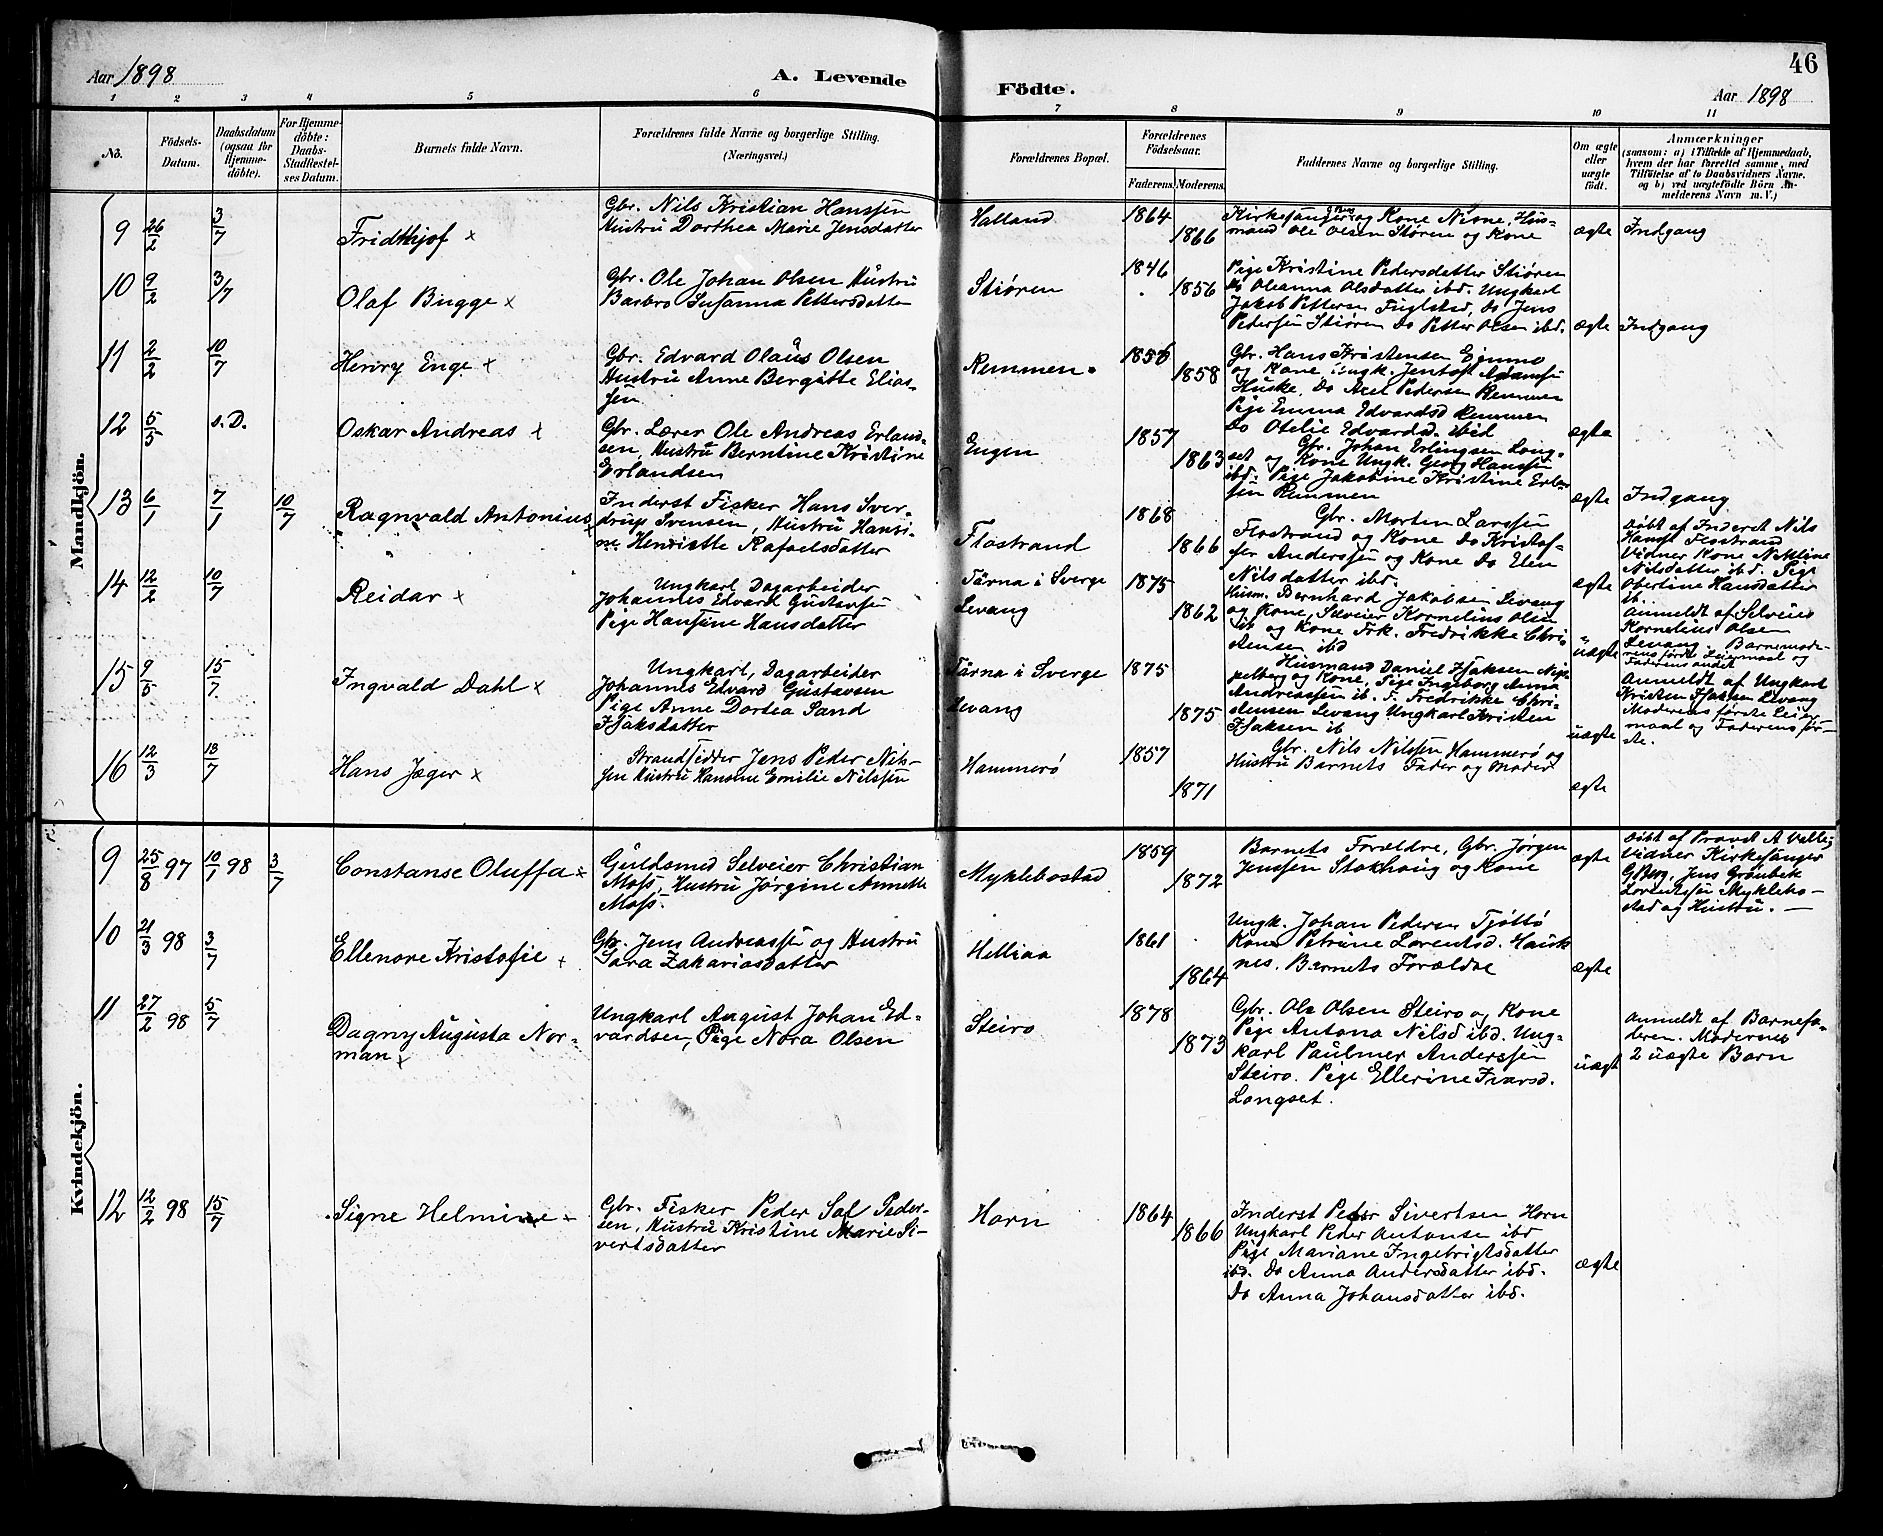 Aar 1898
A. Levende
Födte.
46
Aar 1898
1 2 3 4 5 6 7 8 9 10 11
No.
Födsels-
Datum.
Daabsdatum
(ogsaa for
Hjemme-
döbte).
For Hjemme-
döbte:
Daabs-
Stadfæstel-
ses Datum.
Barnets fulde Navn.
Forældrenes fulde Navne og borgerlige Stilling.
(Næringsvei.)
Forældrenes Bopæl.
Forældrenes
Födselsaar.
Faderens. Moderens.
Faddernes Navne og borgerlige Stilling.
Om ægte
eller
uægte
födt.
Anmærkninger
(saasom: a) i Tilfælde af Hjemmedaab,
hvem der har forrettet samme, med
Tilföielse af to Daabsvidners Navne,
og b) ved uægtefödte Börn An-
melderens Navn m. V.)
Mandkjön.
9 26/2 3/7
Fridthjof x
Gbr. Nils Kristian Hanssen
Hustru Dorthea Marie Jensdatter
Halland
1864
1866
Kirkesanger og Kone Nesne, Hus-
mand Ole Olsen Støren og Kone
ægte
Indgang
10 9/2 3/7
Olaf Bugge x
Gbr. Ole Johan Olsen Hustru
Barbro Susanna Pettersdatter
Stiøren
1846
1856
Pige Kristine Pedersdatter Stiøren
Do Oleanna Olsdatter ibd. Ungkarl
Jakob Pettersen Fuglstad, Do Jens
Pedersen Stiøren Do Petter Olsen ibd.
ægte
Indgang
11 2/2 10/7
Henry Enge x
Gbr. Edvard Olaus Olsen
Hustru Anne Bergitte Elias-
sen
Remmen
1856
1858
Gbr. Hans Kristensen
og Kone Ungk. Jentoft Adamsen
Huske, Do Axel Pedersen Remmen
Pige Emma Edvardsd Remmen
Do Otelie Edvardsd. ibid
ægte
12 5/5 s.D.
Oskar Andreas x
Gbr. Lærer Ole Andreas Erland-
sen, Hustru Berntine Kristine
Erlandsen
Engen
1857
1863
Gbr. Johan Erlingsen Long-
set og Kone Ungk. Georg Hanssen
ibd. Pige Jakobine Kristine Erland-
sen Remmen
ægte
Indgang
13 6/1 7/1 10/7
Ragnvald Antonius x
Inderst Fisker Hans Sver-
drup Svensen, Hustru Hansi-
ne Henriette Rafaelsdatter
Flostrand
1868
1866
Gbr. Morten Larssen
Flostrand og Kone Do Kristof-
fer Anderssen og Kone Do Elen
Nilsdatter ibd.
ægte
Døbt af Inderst Nils
Hanss Flostrand
Vidner Kone
Nilsdatter ibd. Pige
Obertine Hansdatter
ib.
14 12/2 10/7
Reidar x
Ungkarl Dagarbeider
Johannes Edvard Gustavsen
Pige Hansine Hansdatter
Tärna i Sverge
Levang
1875
1862
Husm. Bernhard Jakobsen Levang
og Kone, Selveier Kornelius Olsen
ib og Kone Frk. Fredrikke Chri-
stensen ibd
uægte
Anmeldt af Selveier
Kornelius Olsen
Levang. Barnemode-
rens første Leiermaal og
Faderens andet
15 9/5 15/7
Ingvald Dahl x
Ungkarl, Dagarbeider
Johannes Edvard Gustavsen
Pige Anne Dortea Sand
Isaksdatter
Tärna i Sverge
Levang
1875
1875
Husmand Daniel Isaksen
og Kone, Pige Ingeborg Anna
Andreassen ib. F. Fredrikke Chri-
stensen Levang Ungkarl Kristen
Isaksen ib
uægte
Anmeldt af Ungkarl
Kristen Isaksen Levang
Moderens første Leier-
maal og Faderens før-
ste.
16 12/3 13/7
Hans Jæger x
Strandsidder Jens Peder Nils-
sen Hustru Hansine Emilie Nilssen
Hammerø
1857
1871
Gbr. Nils Nilssen Hammerø og
Hustru Barnets Fader og Moder
ægte
Kvindekjön.
9 25/8 97 10/1 98 3/7
Constanse Oluffa x
Guldsmed Selveier Christian
Moss, Hustru Jørgine Annette
Moss.
Myklebostad
1859
1872
Barnets Foreldre, Gbr. Jørgen
Jenssen Stokhaug og Kone
ægte
Døbt af Provst A Valle,
Vidner Kirkesanger
Jens Grønbek
Lorentsen Myklebo-
stad og Hustru.
10 21/3 98 3/7
Ellenore Kristofie x
Gbr. Jens Andreassen og Hustru
Sara Zakariasdatter
Helliaa
1861
1864
Ungk. Johan Pedersen Tjøttø
Kone Petrine Lorentsd. Hauk-
nes. Barnets Forældre
ægte
11 27/2 98 5/7
Dagny Augusta Nor-
man x
Ungkarl August Johan Ed-
vardsen, Pige Nora Olsen
Steiro
1878
1873
Gbr. Ole Olsen Steiro og Kone
Pige Antona Nilsd ibd. Ung-
karl Paulmer Anderssen
Steiro. Pige Ellerine Ivarsd.
Longset.
uægt
Anmeldt af Barnefa-
deren. Moderens
2 uægte Barn
12 12/2 98 15/7
Signe Helmine x
Gbr. Fisker Peder Sal Peder-
sen, Hustru Kristine Marie Si-
vertsdatter
Horn
1864
1866
Inderst Peder Sivertsen Horn
Ungkarl Peder Antonsen ibd
Pige Mariane Ingebrigtsdatter
ibd. Do Anna Andersdatter ibd.
Do Anna Johansdatter ibd.
ægte